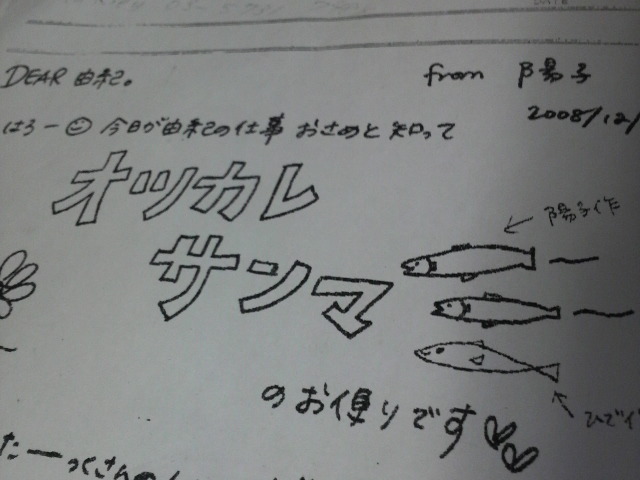 DEAR 由紀。
from 陽子
2008/12/
はろー 今日が由紀の仕事おさめと知って
オツカレ
サンマ
陽子作
ひで作
のお便りです
たーっくさんの